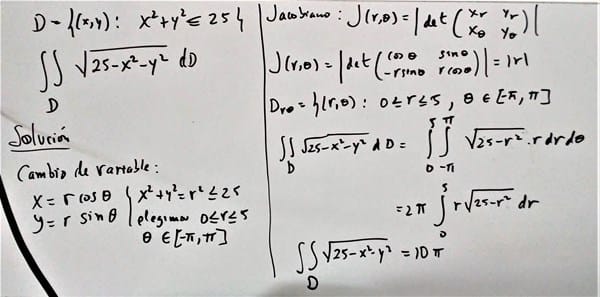 D = {(x,y): x²+y² ≤ 25}
∬_D √(25-x²-y²) dD
Solución
Cambio de variable:
x = r cos θ { x²+y² = r² ≤ 25
y = r sin θ { elegimos 0≤r≤5
θ ∈ [-π, π]
Jacobiano: J(r,θ) = |det (x_r y_r; x_θ y_θ)|
J(r,θ) = |det (cos θ sin θ; -r sin θ r cos θ)| = |r|
D_rθ = {(r,θ): 0≤r≤5, θ ∈ [-π, π]
∬_D √(25-x²-y²) dD = ∫_0^5 ∫_-π^π √(25-r²) · r dr dθ
= 2π ∫_0^5 r √(25-r²) dr
∬_D √(25-x²-y²) = 10π